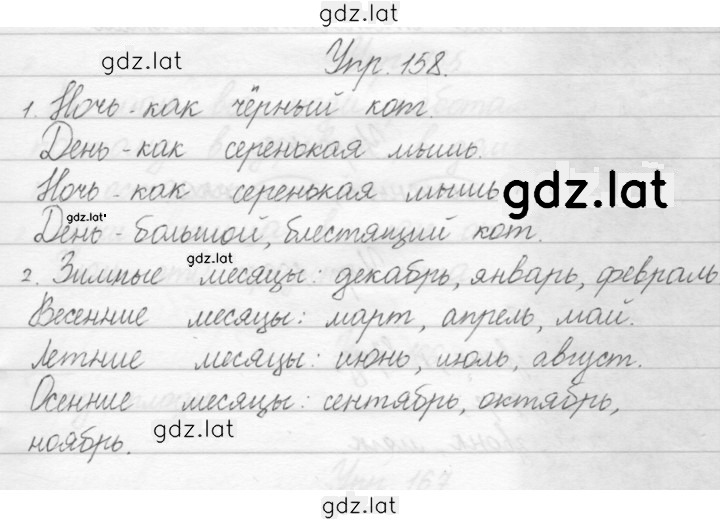 gdz.lat
gdz.lat
Упр. 158.
1. Ночь - как чёрный кот.
День - как серенькая мышь.
Ночь - как серенькая мышь
gdz.lat
gdz.lat
День - большой, блестящий кот.
gdz.lat
2. Зимние месяцы: декабрь, январь, февраль
Весенние месяцы: март, апрель, май.
Летние месяцы: июнь, июль, август.
Осенние месяцы: сентябрь, октябрь,
ноябрь.
gdz.lat
gdz.lat